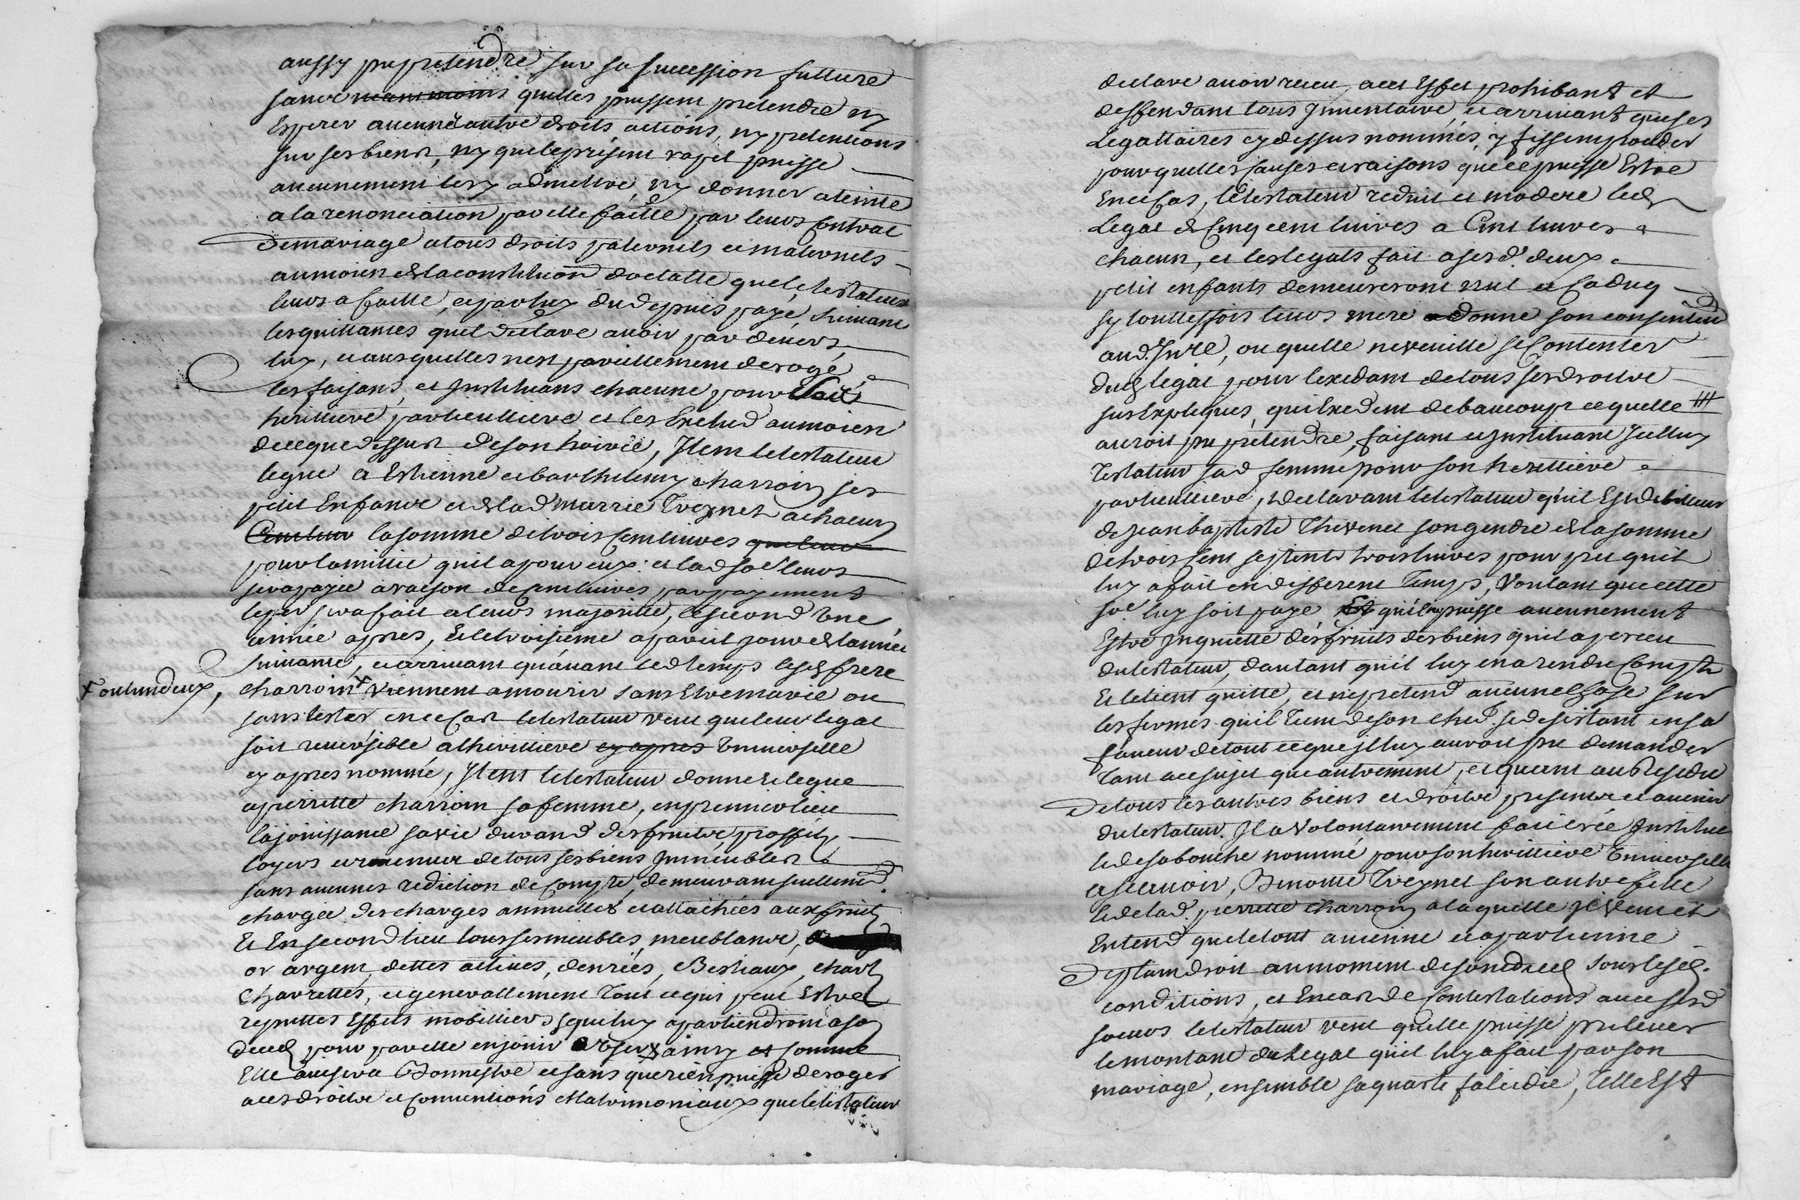 aussy pu pretendre sur sa succession fuтure
sans neantmoins quelles puissent pretendre ny
Esperer aucune autre droits, actions, ny pretentions
sur ses biens, ny que le present rapel puisse
aucunement les y admettre, ny donner ateinte
a la renonciation par elle faitte par leurs Contrat
de mariage a tous droits paternels et maternels
au moien de la constitution dotalle que le testateur
leurs a faitte, et par luy du depuis payé, suivant
les quittances quil declare avoir par devers
luy, et ausquelles nest pareillement derogé
les faisans, et Instituans chacune pour
heritiere particulliere, et les Exclud au moien
de ce que dessus de son hoirie, Item le testateur
legue a Estienne et barthelemy charroin ses
petit Enfans et de lad. marrie Treynet a chacun
la somme de trois Cent livres
pour lamittié quil a pour eux et lad. so.e leurs
sera payée a raison de cent livres par payement
le p.er sera fait a leurs majorité, le second une
année apres, et le troisieme a pareil jour de lannée
suivante, et arrivant quavant led. temps lesd. frere
charroin x viennent a mourir sans Estre marié ou
x ou lun deux,
sans tester en ce Cas le testateur veut que leur legat
soit reversible a lheritiere cy apres Universelle
cy apres nommée, Item le testateur donne et legue
a pierrette charroin sa femme, en premier lieu
la jouissance sa vie durand des fruits proffits
loyers et revenus de tous ses biens Immeubles
sans aucunes rediction de Compte, demeurant seullem.t
chargée des charges annuelles et attachées aux fruits
Et En second lieu tous ses meubles, meublans,
or argent, dettes actives, denrées, Bestiaux, chars
Charrettes, et generallement Tout ce qui peut Estre
reputtes Effets mobilliers, & qui luy apartiendront a son
deced pour par elle en jouir
Elle avisera Bonnestre et sans que rien puisse deroger
a ces droits et Conventions Matrimoniaux que le testateur
declare avoir receu, a cet Effet prohibant et
deffendant tous Inventaire, et arrivant que ses
Legattaires cy dessus nommés, y fissent proceder
pour quelles causes et raisons que ce puisse Estre
En ce Cas, le testateur reduit et modere led.
Legat de Cinq cent livres a Cent livres
chacun, et les legats fait a ses d. deux
petit enfants demeureront nul et Caduq
sy touttesfois leurs mere donne son consentem.t
aud. Inre, ou quelle ne veuille se Contenter
dud. legat pour lexedant de tous ses droits
sus Expliqués, qui Excedent de baucoup ce quelle
auroit pu pretendre, faisant et Instituant Icelluy
Testateur sad. femme pour son heretiere
particulliere, declarant le testateur quil Est debitteur
de Jean baptiste Thevenet son gendre de la somme
de trois Cent septente trois livres pour pret quil
luy a fait en different Temps, voulant que cette
so.e luy soit payé Et quil ne puisse aucunement
Estre Inquietté des fruits des biens quil a perceu
du testateur, dautant quil luy en a rendu Compte
Et le tient quitte, et ne pretend aucune chose sur
les fermes quil Tient de son chef, se desistant en sa
faveur de tout ce que Il luy auroit pu demander
Tant a ce sujet que autrement, et quant au Residu
de tous les autres biens et droits presents et avenir
du testateur, Il a volontairement fait cree Institue
et de sa bouche nommé pour son heritiere Universelle
a scavoir, Benoitte Treynet son autre fille
et de lad. pierrette charroin a laquelle Il veut et
Entend que le tout avienne et apartienne
De plain droit au moment de son deced sous lesd.
conditions, et En cas de Contestations avec sesd.
soeurs le testateur veut quelle puisse prelever
le montant du legat quil luy a fait par son
mariage, ensemble sa quarte falcidie, Telle Est